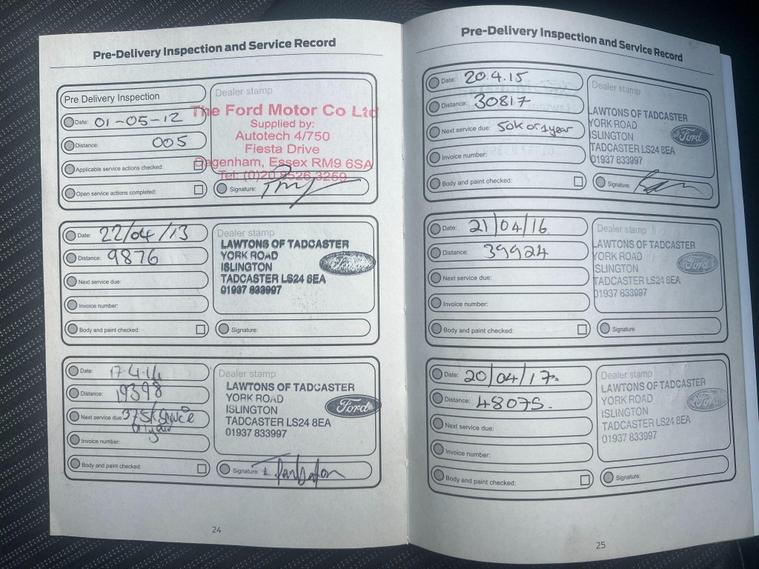 Pre-Delivery Inspection and Service Record
Pre Delivery Inspection
Date: 01-05-12
Distance: 005
Applicable service actions checked:
Open service actions completed:
Dealer stamp
The Ford Motor Co Ltd
Supplied by:
Autotech 4/750
Fiesta Drive
Dagenham, Essex RM9 6SA
Tel: (0)20 8526 3269
Signature:
Date: 22/04/13
Distance: 9876
Next service due:
Invoice number:
Body and paint checked:
Dealer stamp
LAWTONS OF TADCASTER
YORK ROAD
ISLINGTON
TADCASTER LS24 8EA
01937 833997
Ford
Signature:
Date: 17-4-14
Distance: 19398
Next service due:
Invoice number:
Body and paint checked:
Dealer stamp
LAWTONS OF TADCASTER
YORK ROAD
ISLINGTON
TADCASTER LS24 8EA
01937 833997
Ford
Signature:
24
Pre-Delivery Inspection and Service Record
Date: 20.4.15
Distance: 30817
Next service due: 50K or 1 year
Invoice number:
Body and paint checked:
Dealer stamp
LAWTONS OF TADCASTER
YORK ROAD
ISLINGTON
TADCASTER LS24 8EA
01937 833997
Ford
Signature:
Date: 21/04/16
Distance: 39924
Next service due:
Invoice number:
Body and paint checked:
Dealer stamp
LAWTONS OF TADCASTER
YORK ROAD
ISLINGTON
TADCASTER LS24 8EA
01937 833997
Ford
Signature:
Date: 20/04/17.
Distance: 48075.
Next service due:
Invoice number:
Body and paint checked:
Dealer stamp
LAWTONS OF TADCASTER
YORK ROAD
ISLINGTON
TADCASTER LS24 8EA
01937 833997
Ford
Signature:
25